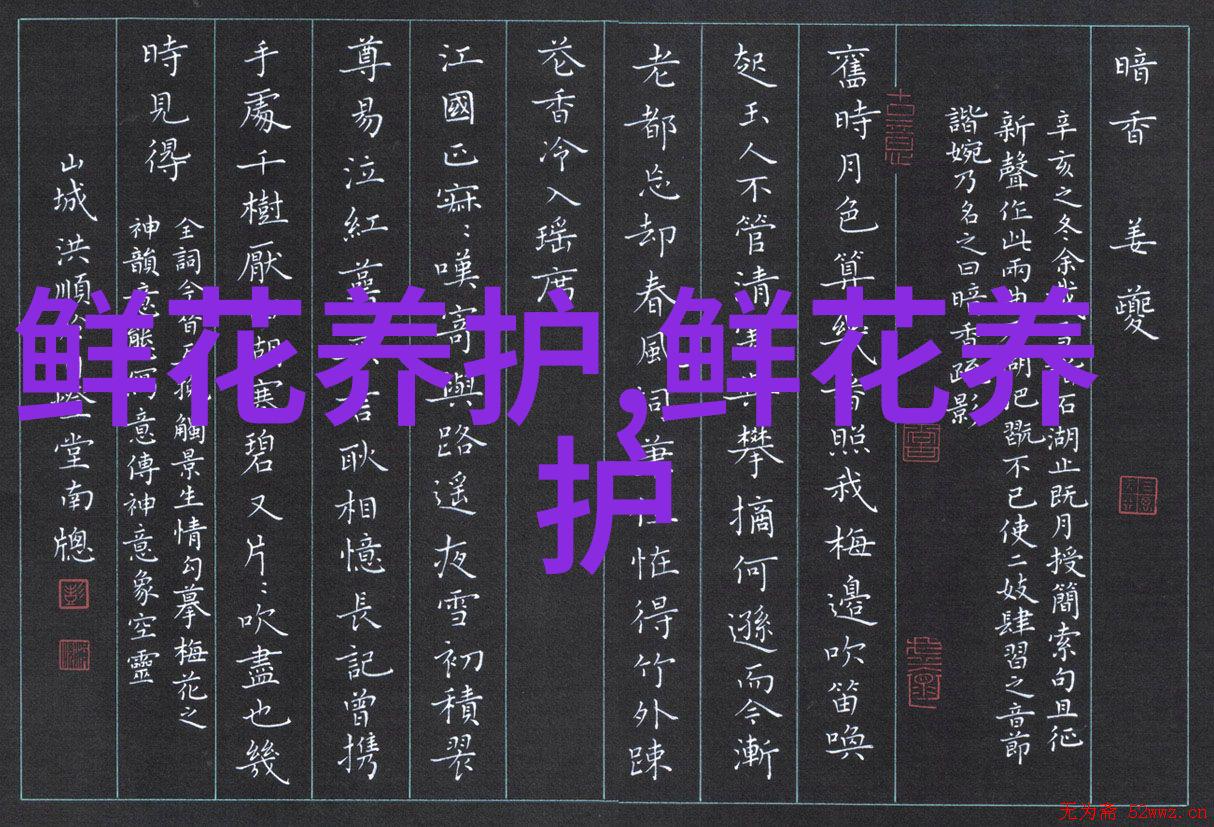 鲜花养护,鲜花养
护
暗香 姜夔
辛亥之冬余石湖止既月授簡索句且征
新聲作此兩曲湖把翫不已使二妓肆習之音節
諧婉乃名之曰暗香疏影
舊時月色算幾番照我梅邊吹笛喚
起玉人不管清寒與攀摘何遜而今漸
老都忘却春風詞筆恠得竹外疎
花香冷入瑶席
江國正寂:嘆寄與路遥夜雪初積翠
尊易泣紅萼無言耿相憶長記曾携
手處千樹壓湖寒碧又片:吹盡也幾
時見得
全詞今昔觸景生情勾摹梅花之
神韻意態寫意傳神意象空靈
山城洪順堂南牕
古意
无为斋 52wwz.cn